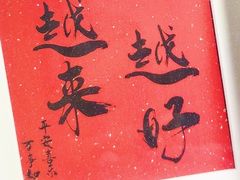 越来
越好
平安喜乐
万事